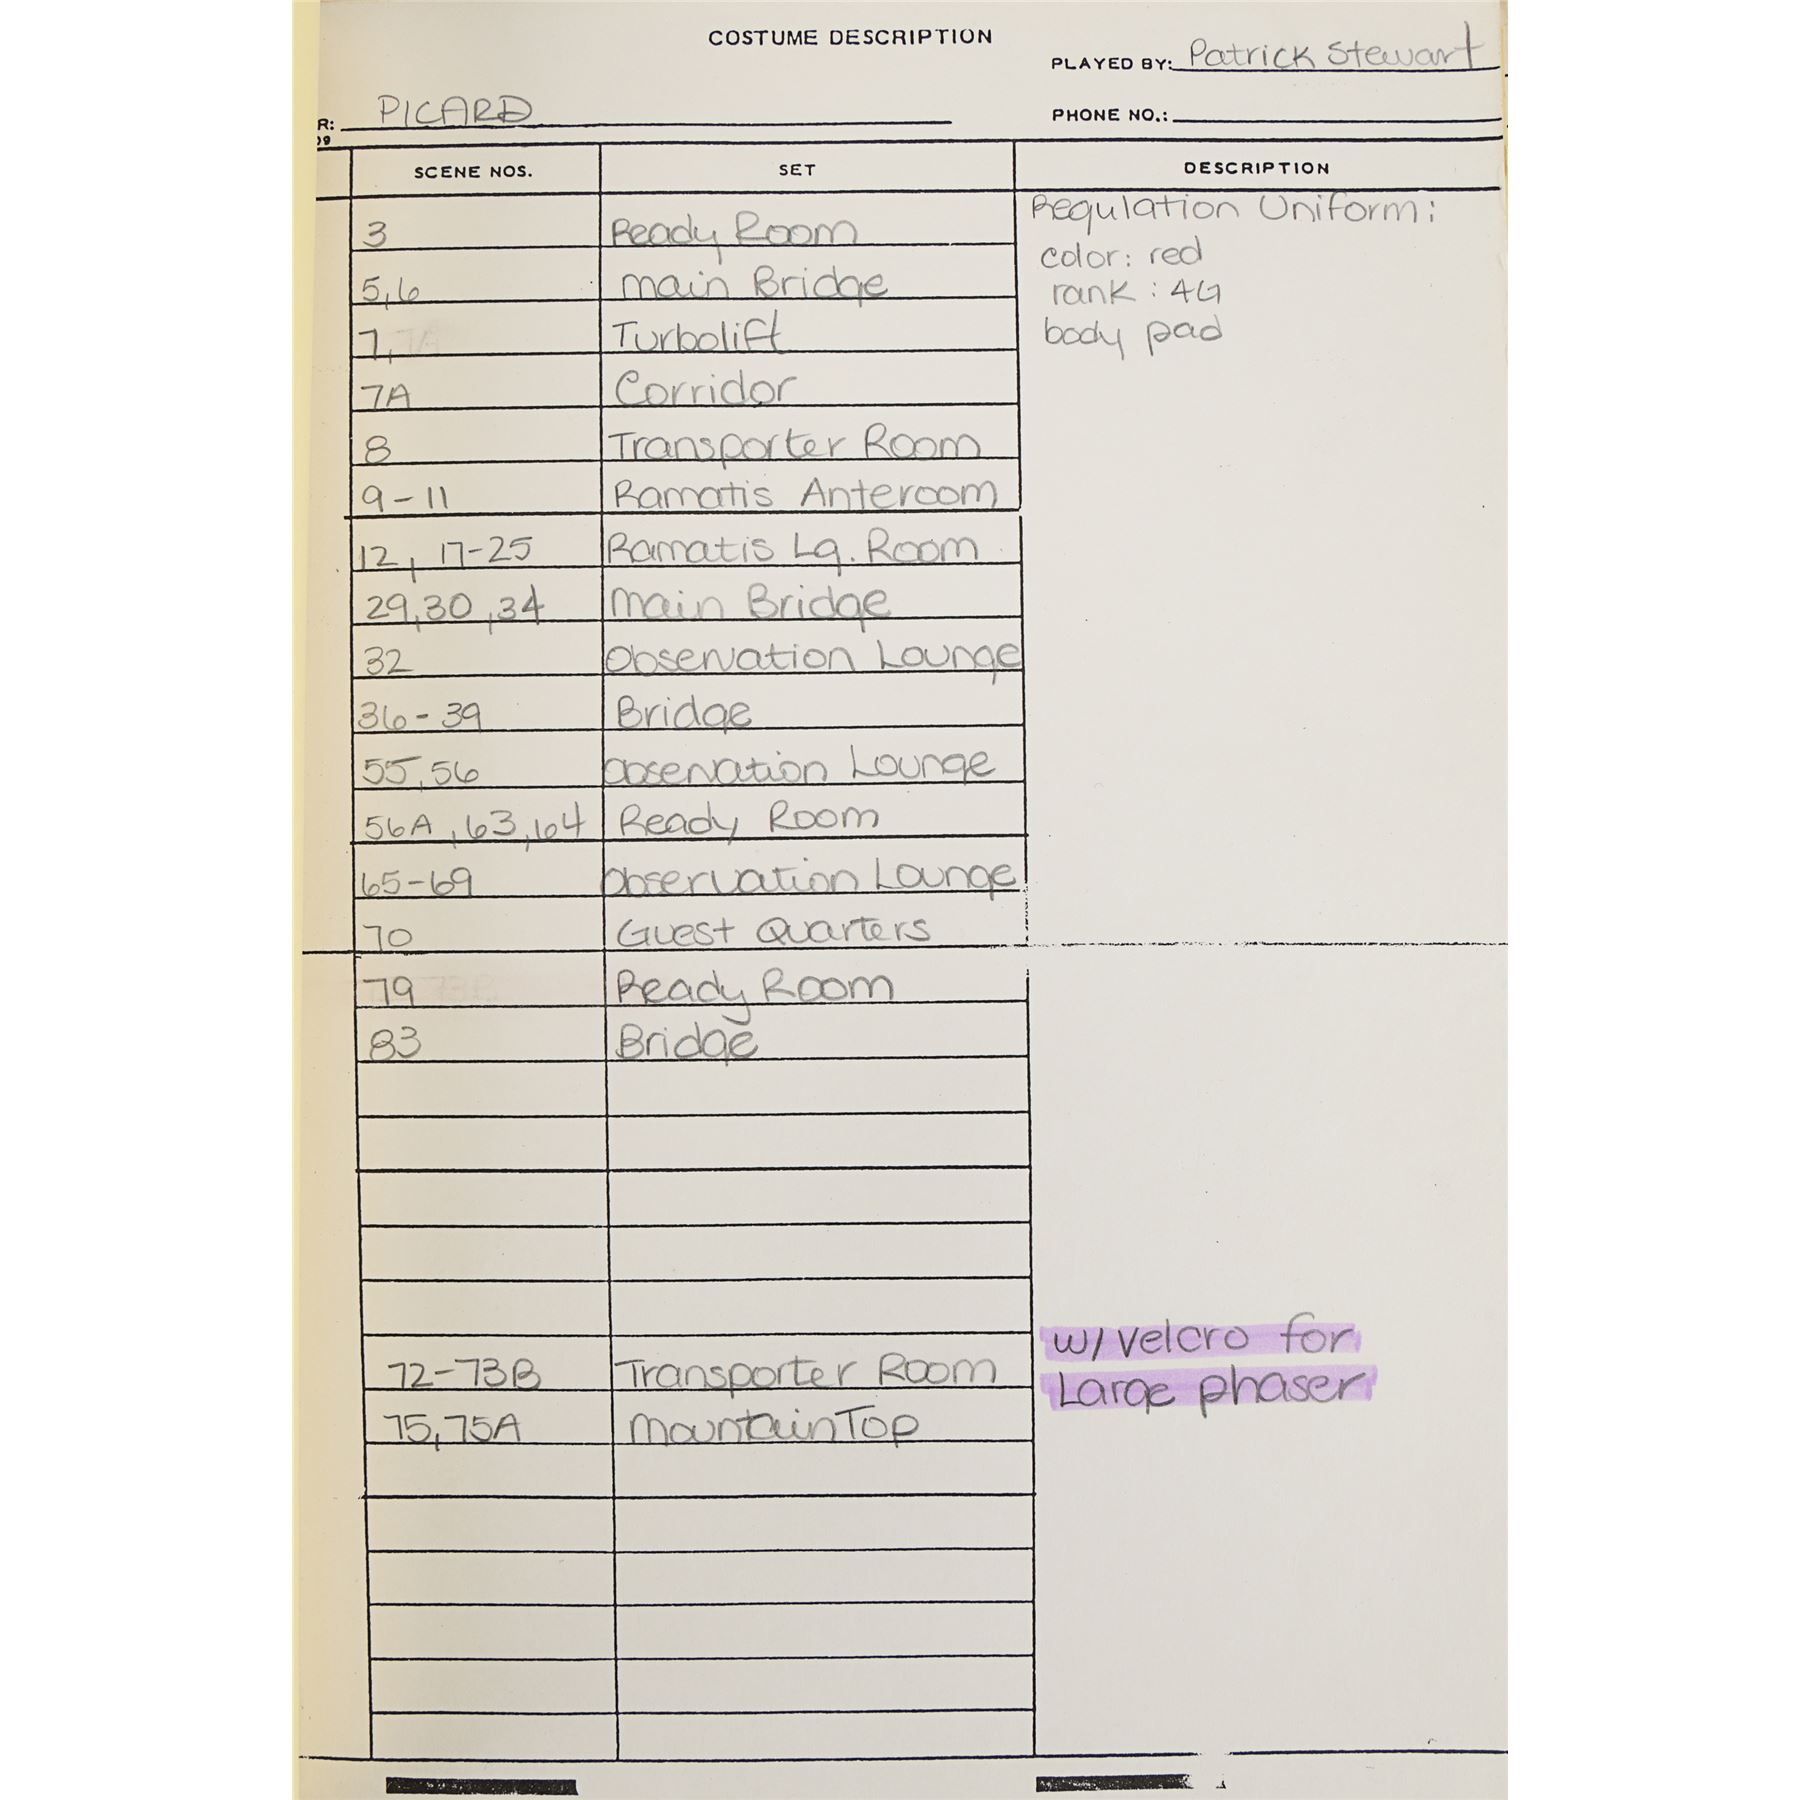 COSTUME DESCRIPTION
PLAYED BY: Patrick Stewart
R: PICARD
PHONE NO.:
09
SCENE NOS. SET DESCRIPTION
Regulation Uniform:
3 Ready Room
color: red
5,6 Main Bridge
rank: 4G
7, Turbolift
body pad
7A Corridor
8 Transporter Room
9-11 Ramatis Anteroom
12, 17-25 Ramatis Lg. Room
29,30,34 Main Bridge
32 Observation Lounge
36-39 Bridge
55,56 Observation Lounge
56A,63,64 Ready Room
65-69 Observation Lounge
70 Guest Quarters
79 Ready Room
83 Bridge
w/velcro for
72-73B Transporter Room
Large phaser
75,75A MountainTop